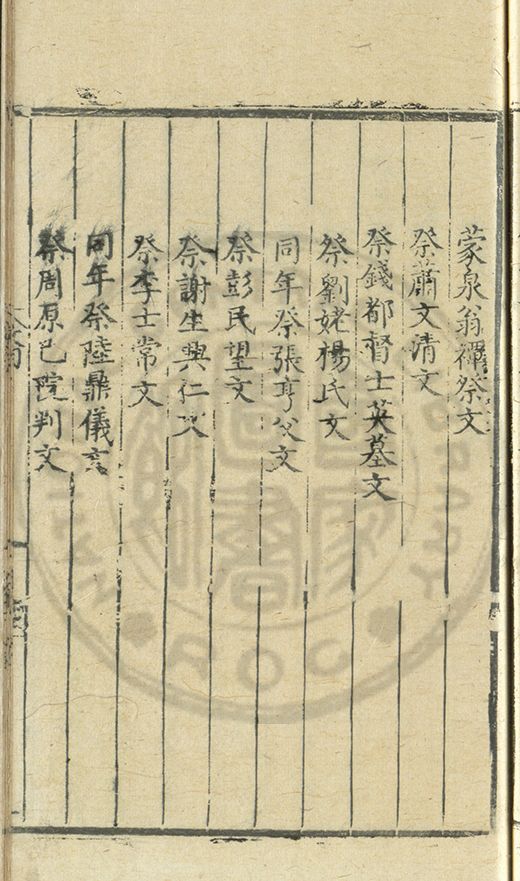 蒙泉翁禫祭文
祭蕭文清文
祭錢都督士英墓文
祭劉姥楊氏文
同年祭張亨父文
祭彭民望文
祭謝生興仁文
祭李士常文
同年祭陸鼎儀文
祭周原已院判文